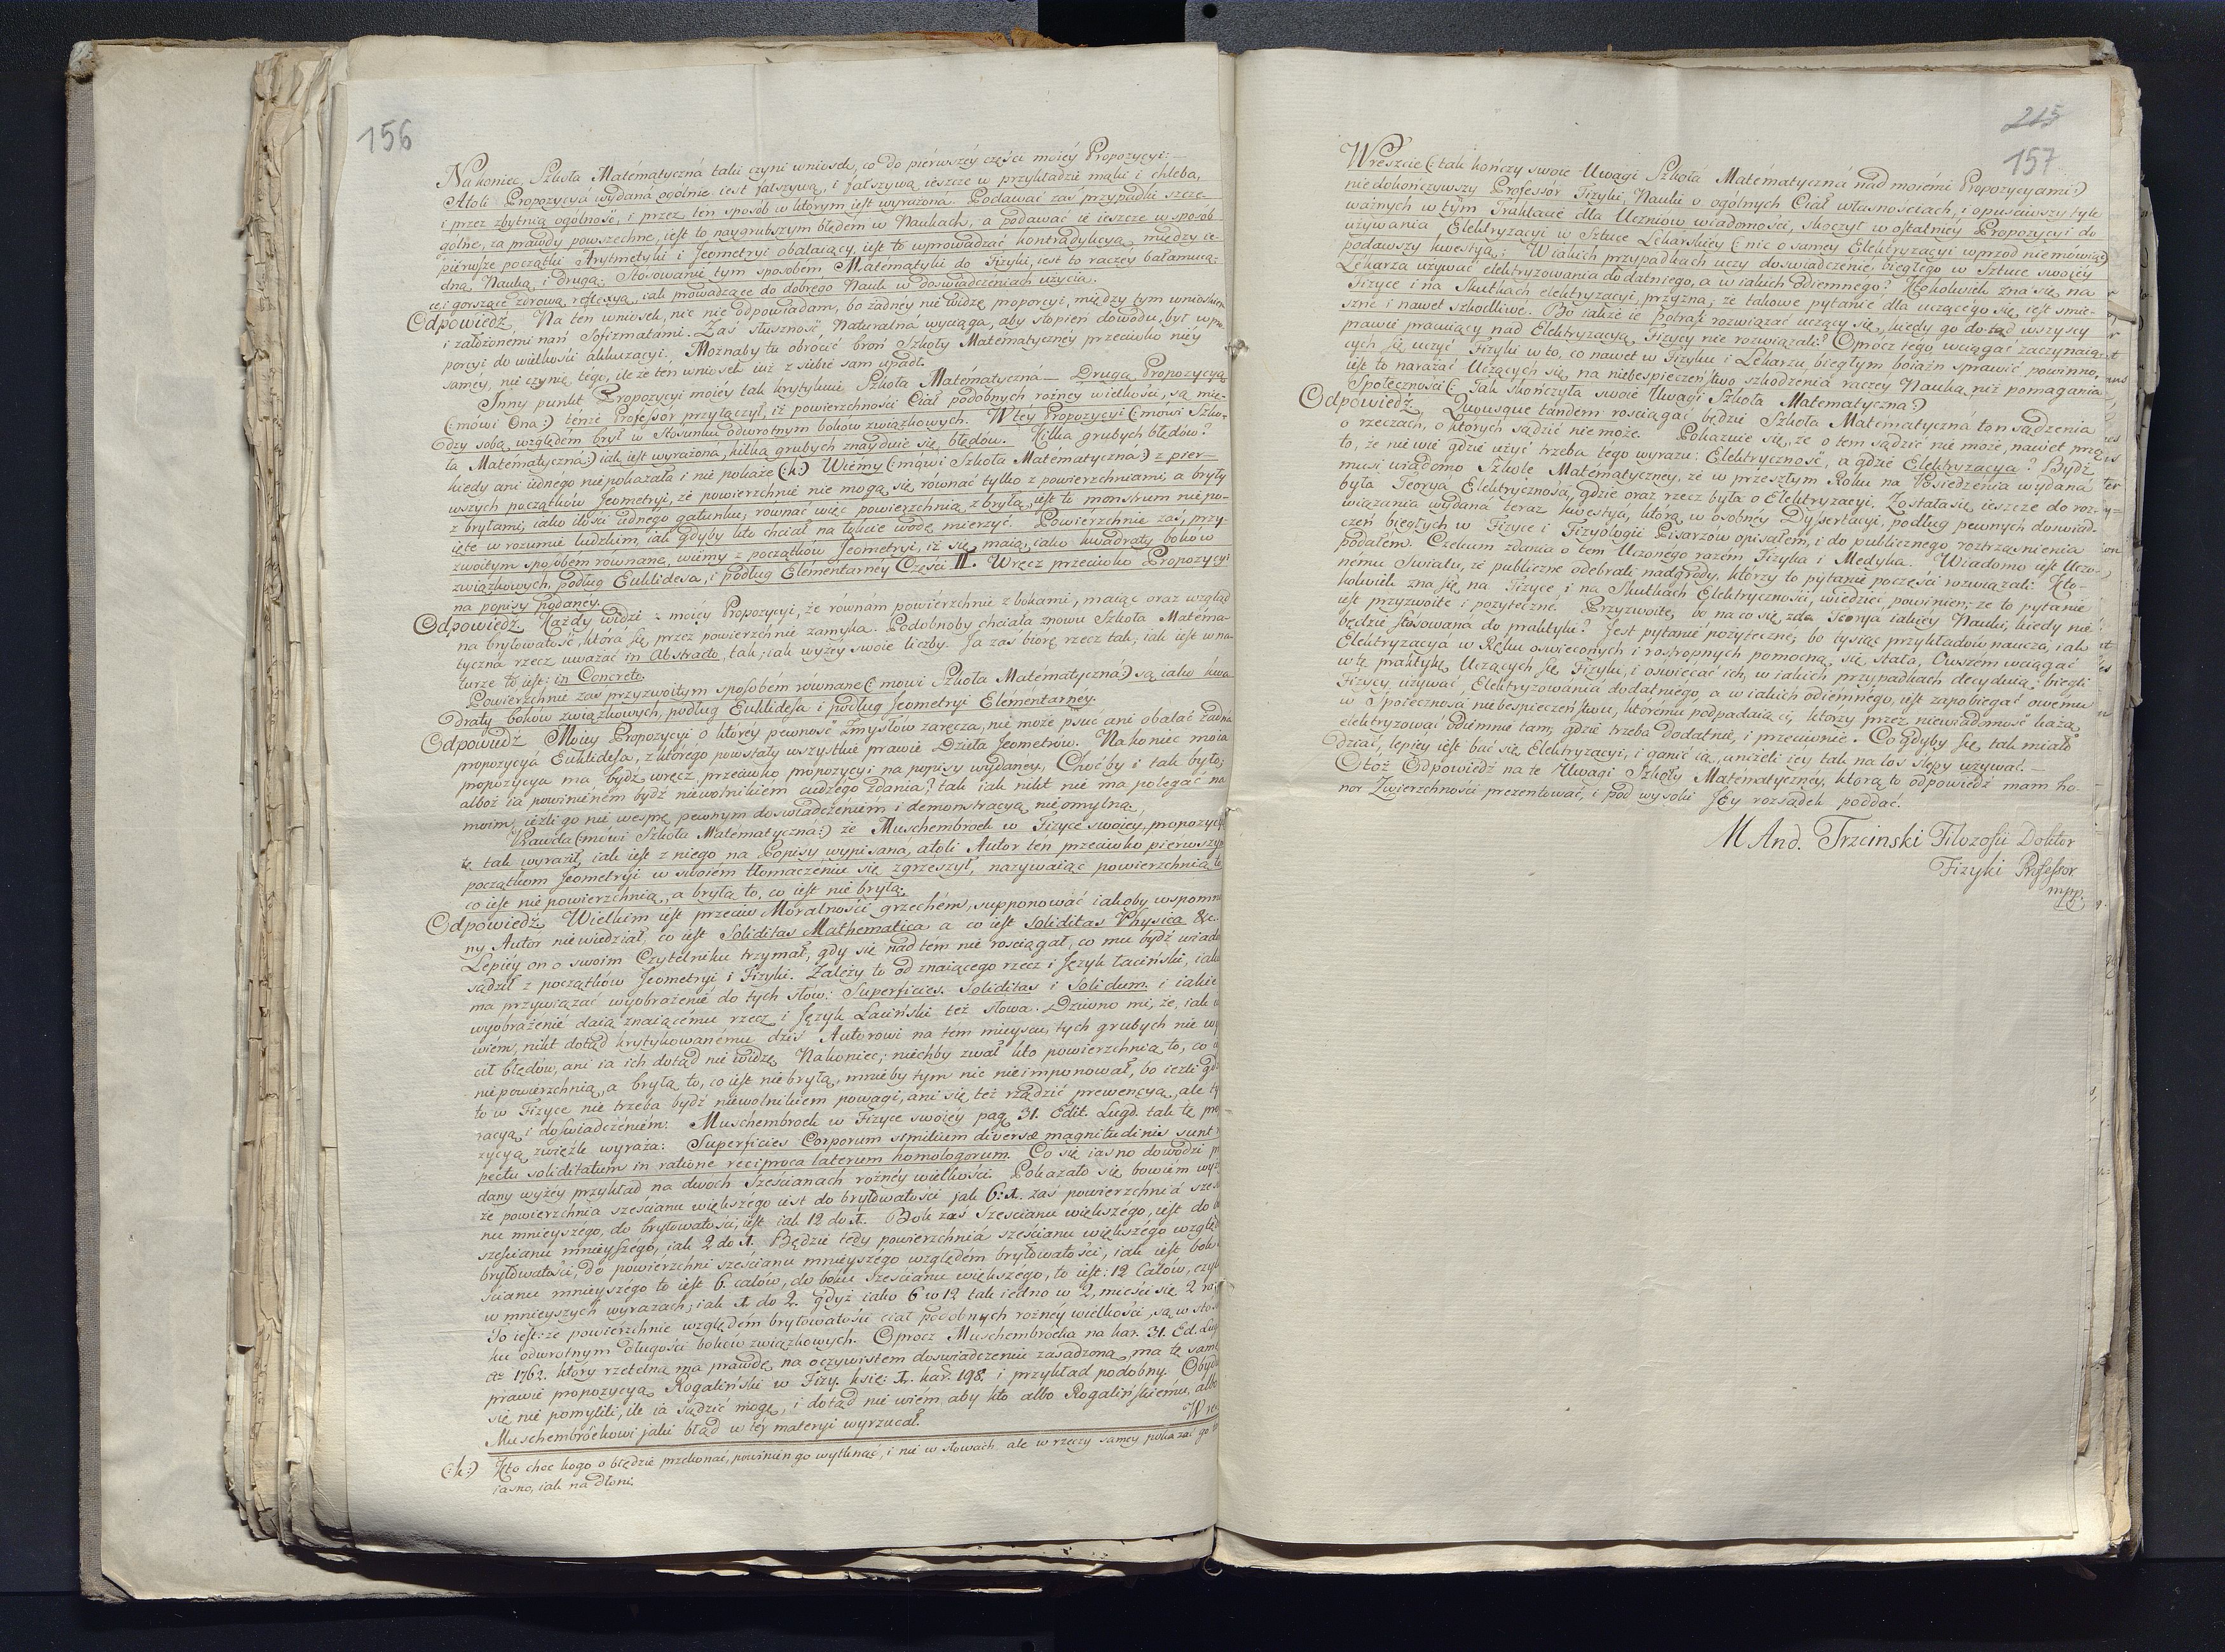 156
Nakoniec, Szkoła Matématyczná taki czyni wniosek, co do piérwszéy części moiéy Propozycyi: —
Atoli Propozycyá wydaná ogólnie iest fałszywą, i fałszywą ieszcze w przykładzie mąki i chleba,
i przez zbytnią ogólność, i przez ten sposób w którym iest wyrażona. Podawać zaś przypadki szcze-
gólne, za prawdy powszechne, iest to naygrubszym błędem w Naukach, a podawać ie ieszcze w sposób
piérwsze początki Arytmetyki i Jeometryi obalaiący, iest to wprowadzać kontradykcyą, między ie-
dną Nauką i drugą. Stosowanie tym sposobem Matématyki do Fizyki, iest to raczéy bałamucą-
ce i gorszące zdrową reflexyą, iak prowadzące do dobrego Nauk w doświadczeniach użycia.
Odpowiedź. Na ten wniosek, nic nie odpowiadam, bo żadnéy nie widzę proporcyi, między tym wnioskiem
i założonemi nań Sofizmatami. Zaś słuszność Naturalná wyciąga, aby stopień dowodu, był w pro-
porcyi do wielkości akkuzacyi. Możnaby tu obrócić broń Szkoły Matématycznéy przeciwko niéy
saméy, nie czynię tégo, ile że ten wniosek iuż z siebie sam upadł.
Inny punkt Propozycyi moiéy tak krytykuie Szkoła Matématyczná — Drugą Propozycyą
(: mówi Ona :) ténże Professor przyłączył, iż powierzchności Ciał podobnych różnéy wielkości, są mię-
dzy sobą względem brył w Stósunku odwrotnym boków związkowych. W téy Propozycyi (: mówi Szko-
ła Matématyczná :) iak iest wyrażona, kilka grubych znayduie się błędów. Kilka grubych błędów?
kiedy ani iednego nie pokazała i nie pokaże (: k :) Wiémy (: mówi Szkoła Matématyczna :) z pier-
wszych początków Jeometryi, że powierzchnie nie mogą się równać tylko z powierzchniami, a bryły
z bryłami, iako ilości iednego gatunku; równać więc powierzchnią z bryłą, iest to monstrum niepo-
ięte w rozumie ludzkim, iak gdyby kto chciał na łokcie wodę mierzyć. Powiérzchnie zaś, przy-
zwoitym sposobém równane, wiémy z początków Jeometryi, iż się maią, iako kwadraty boków
związkowych, podług Euklidesa, i podług Elémentarnéy Części II. Wręcz przeciwko Propozycyi
na popisy podanéy.
Odpowiedź. Każdy widzi z moiéy Propozycyi, że równám powiérzchnie z bokami, maiąc oraz wzgląd
na bryłowatość, którá się przez powierzchnie zamyka. Podobnoby chciała znowu Szkoła Matéma-
tyczna rzecz uważać in Abstracto, tak, iak wyżéy swoie liczby. Ja zaś biorę rzecz tak, iak iest w na-
turze to iest: in Concreto.
Powierzchnie zaś przyzwoitym sposobém równane (: mówi Szkoła Matématyczná :) są iako kwa-
draty boków związkowych, podług Euklidesa i podług Jeometryi Elémentarnéy.
Odpowiedź. Moiéy Propozycyi o któréy pewność Zmysłów zaręcza, nie może psuć ani obalać żadná
propozycyá Euklidesa, z którégo powstały wszystkie prawie Dzieła Jeometrów. Nakoniec moia
propozycya ma bydź wręcz przeciwko propozycyi na popisy wydanéy. Choćby i tak było,
alboż ia powinienem bydź niewolnikiem cudzego zdania? tak iak nikt nie ma polegać na
moim, ieżli go nie wesprę pewnym doświadczeniem i demonstracyą nieomylną.
Prawda (: mówi Szkoła Matématyczna :) że Muschembroek w Fizyce swoiéy, propozycyą
tę tak wyraził, iak iest z niego na Popisy wypisana, atoli Autor tén przeciwko pierwszym
początkom Jeometryi w swoiém tłomaczeniu się zgrzeszył, nazywaiąc powierzchnią to
co iest nie powierzchnią, a bryłą to, co iest nie bryłą.
Odpowiedź. Wielkim iest przeciw Moralności grzechém, supponować iakoby wspomnio
ny Autor niewiedział, co iest Soliditas Mathematica a co iest Soliditas Physica &c.
Lepiéy on o swoim Czytelniku trzymał, gdy się nad tém nie rościągał, co mu bydź wiado
sądził z początków Jeometryi i Fizyki. Zależy to od znaiącego rzecz i Język łaciński, iakie
ma przywiązać wyobrażenié do tych słów: Superficies. Soliditas i Solidum. i iakie
wyobrażenié daią znaiącému rzecz i Język Łaciński też słowa. Dziwno mi, że, iak
wiém, nikt dotąd krytykowanému dziś Autorowi na tem mieyscu, tych grubych nie wy
cił błędów, ani ia ich dotąd nie widzę. Nakoniec, niechby zwał kto powierzchnią to, co
nie powierzchnią, a bryłą to, co iest nie bryłą, mnieby tym nic nie imponował, bo ieżli gdz
to w Fizyce nie trzeba bydź niewolnikiem powagi, ani się też rządzić prewencyą, ale ty
racyą i doświadczéniém. Muschembroek w Fizyce swoiéy pag. 31. Edit. Lugd. tak tę pro
zycyą zwięźle wyraża: Superficies Corporum similium diversæ magnitudinis sunt
pectu soliditatum in ratione reciproca laterum homologorum. Co się iasno dowodzi
dany wyżéy przykład na dwóch Sześcianach różnéy wielkości. Pokazało się bowiém wyż
że powierzchnia sześcianu większego iest do bryłowatości iak 6: 1. zaś powierzchniá sześ
nu mnieyszégo, do bryłowatości, iest iak 12 do 1. Bok zaś Sześcianu większégo, iest do
sześcianu mnieyszégo, iak 2 do 1. Będzie tedy powierzchniá sześcianu większégo wzglę
bryłowatości, do powiérzchni sześcianu mnieyszégo względém bryłowatości, iak iest bok
ścianu mnieyszégo to iest 6. calów, do boku Sześcianu większégo, to iest: 12 Calów, czyli
w mnieyszych wyrazach, iak 1. do 2. gdyż iako 6 w 12 tak iedno w 2, mieści się 2 ra
To iest: że powierzchnie względém bryłowatości ciał podobnych różnéy wielkości, są w stó
ku odwrotnym długości boków związkowych. Oprócz Muschembroeka na kar. 31. Ed. Lug
Ao 1762. który rzetelną ma prawdę, na oczywistem doswiadczeniu zasadzoną, ma tę samę
prawie propozycyą Rogaliński w Fizy. księ: 1. kar. 198. i przykład podobny. Obyd
się nie pomylili, ile ia sądzić mogę, i dotąd nie wiém, aby kto albo Rogalińskiému, albo
Muschembróekowi iaki błąd w téy materyi wyrzucał.
Wre
(: k :) Kto chce kogo o błędzie przekonać, powinien go wytknąć, i nie w słowach ale w rzeczy saméy pokazać go
iasno, iak na dłoni.
215
157
Wreszcie (: tak kończy swoie Uwagi Szkoła Matématyczná nad moiémi Propozycyami :)
niedokończywszy Professór Fizyki, Nauki o ogólnych Ciał własnościach, i opuściwszy tyle
ważnych w tym Traktacie dla Uczniów wiadomości, skoczył w ostatniéy Propozycyi do
używania Elektryzacyi w Sztuce Lekárskiéy (: nic o saméy Elektryzacyi wprzod niemówiąc
podawszy kwestyą: W iakich przypadkach uczy doswiadczenié biegłego w Sztuce swoiéy
Lékarza używać elektryzowania dodatniego, a w iakich odiemnego? Ktokolwiek zna się na
Fizyce i na Skutkach elektryzacyi, przyzna, że takowe pytanié dla uczącégo się, iest śmie-
szne i nawet szkodliwé. Bo iakże ie potrafi rozwiązać uczący się, kiedy go dotąd wszyscy
prawie pracuiący nad Elektryzacyą, Fizycy nie rozwiązali? Oprócz tego, wciągać zaczynaią-
cych się uczyć Fizyki w to, co nawet w Fizyku i Lékarzu biegłym boiaźń sprawić powinno,
iest to narażać Uczących się na niebespieczeństwo szkodzenia raczéy Nauką, niż pomagania
Społeczności (: Tak skończyła swoié Uwagi Szkoła Matématyczna :)
Odpowiedź. Quousque tandem rościągać będzie Szkoła Matématyczná ton sądzenia
o rzeczach, o których sądzić nie może. Pokazuie się, że o tem sądzić nie może, nawet przez
to, że nie wie gdzie użyć trzeba tego wyrazu: Elektryczność, a gdzie Elektryzacya? Bydź
musi wiadomo Szkole Matématycznéy, że w przeszłym Roku na Posiedzénia wydaná
była Teorya Elektryczności, gdzie oraz rzecz była o Elektryzacyi. Została się ieszcze do roz-
wiązania wydaná teraz kwestyá, którą w osobnéy Dyssertacyi, podług pewnych doswiad-
czeń biegłych w Fizyce i Fizyologii Pisarzów opisałem, i do publicznego roztrząśnienia
podałém. Czekam zdania o tem Uczonego razém Fizyka i Medyka. Wiadomo iest Uczo-
nému Swiatu, że publiczne odebrali nadgrody, którzy to pytanié poczęści rozwiązali. Kto-
kolwiek zna się na Fizyce i na Skutkach Elektryczności, wiedzieć powinien, że to pytanié
iest przyzwoite i pożyteczne. Przyzwoite, bo na co się zda Teorya iakiéy Nauki, kiedy nie
będzie stósowaná do praktyki? Jest pytanié pożyteczné; bo tysiąc przykładów naucza, iak
Elektryzacyá w Ręku oświeconych i rostropnych pomocną się stała. Owszem wciągać
w tę praktykę Uczących się Fizyki, i oświécać ich, w iakich przypadkach decyduią, biegli
Fizycy używać Elektryzowania dodatniego, a w iakich odiemnégo, iest zapobiegać owemu
w Społeczności niebespieczeństwu, któremu podpadaią ci, którzy przez niewiadomość każą
elektryzować odiemnie tam, gdzie trzeba dodatnie, i przeciwnie. Co gdyby się tak miało
dziać, lepiéy iest bać się Elektryzacyi, i ganić ią, aniżeli iéy tak na los slepy używać. —
Otóż Odpowiedź na te Uwagi Szkoły Matématycznéy, którą to odpowiédź mam ho-
nor Zwierzchności prezentować, i pod wysoki Jéy rozsądek poddać.
M And. Trzcinski Filozofii Doktor
Fizyki Professor
mpp.